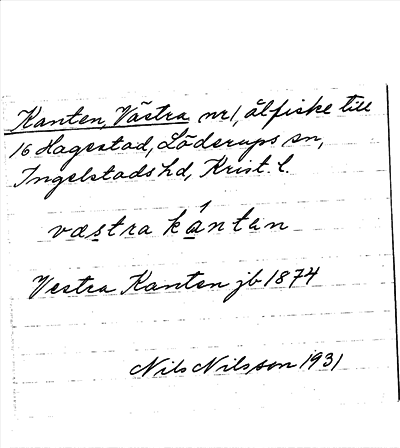 Kanten, Västra nr 1, ålfiske till
16 Hagestad, Löderups sn,
Ingelstads hd, Krist. l.
væstra kantan
Vestra Kanten jb 1874
Nils Nilsson 1931